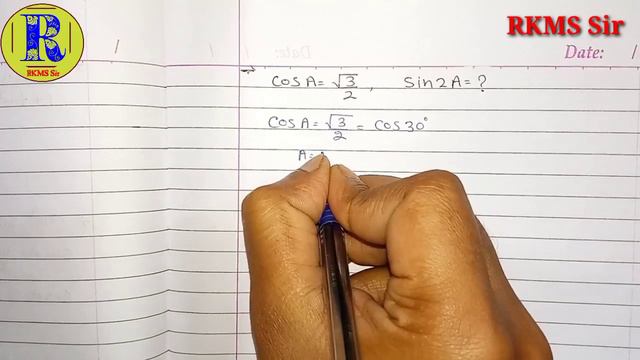 R
RKMS Sir
RKMS Sir
Date: /
cos A = √3/2 , Sin 2A = ?
cos A = √3/2 = cos 30°
A =